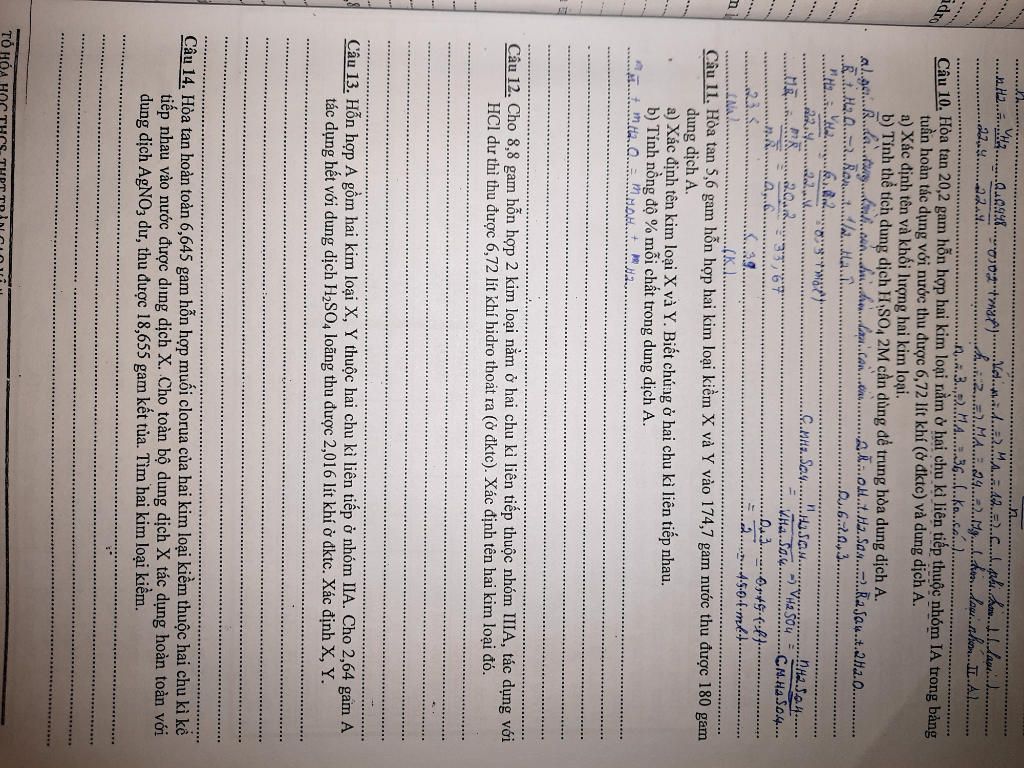 nH2 = VH2/22,4 = 0,0448/22,4 = 0,02 (mol) Với n = 1 => MA = 12 => C (phi kim) (loại)
n = 2 => MA = 24 => Mg (kim loại nhóm IIA)
n = 3 => MA = 36 (ko có)
Câu 10. Hòa tan 20,2 gam hỗn hợp hai kim loại nằm ở hai chu kì liên tiếp thuộc nhóm IA trong bảng
tuần hoàn tác dụng với nước thu được 6,72 lít khí (ở đktc) và dung dịch A.
a) Xác định tên và khối lượng hai kim loại.
b) Tính thể tích dung dịch H2SO4 2M cần dùng để trung hòa dung dịch A.
a) gọi R̄ là
R̄ + H2O -> R̄OH + 1/2 H2 ↑
2R̄OH + H2SO4 -> R̄2SO4 + 2H2O
0,6 0,3
nH2 = VH2/22,4 = 6,72/22,4 = 0,3 (mol)
CM H2SO4 = nH2SO4/VH2SO4 => VH2SO4 = nH2SO4/CM H2SO4
MR̄ = mR̄/nR̄ = 20,2/0,6 = 33,67
= 0,3/2 = 0,15 (l)
= 150 (ml)
23 < < 39
(Na) (K)
Câu 11. Hòa tan 5,6 gam hỗn hợp hai kim loại kiềm X và Y vào 174,7 gam nước thu được 180 gam
dung dịch A.
a) Xác định tên kim loại X và Y. Biết chúng ở hai chu kì liên tiếp nhau.
b) Tính nồng độ % mỗi chất trong dung dịch A.
mM̄ + mH2O = mMOH + mH2
Câu 12. Cho 8,8 gam hỗn hợp 2 kim loại nằm ở hai chu kì liên tiếp thuộc nhóm IIIA, tác dụng với
HCl dư thì thu được 6,72 lít khí hidro thoát ra (ở đktc). Xác định tên hai kim loại đó.
Câu 13. Hỗn hợp A gồm hai kim loại X, Y thuộc hai chu kì liên tiếp ở nhóm IIA. Cho 2,64 gam A
tác dụng hết với dung dịch H2SO4 loãng thu được 2,016 lít khí ở đktc. Xác định X, Y.
Câu 14. Hòa tan hoàn toàn 6,645 gam hỗn hợp muối clorua của hai kim loại kiềm thuộc hai chu kì kế
tiếp nhau vào nước được dung dịch X. Cho toàn bộ dung dịch X tác dụng hoàn toàn với
dung dịch AgNO3 dư, thu được 18,655 gam kết tủa. Tìm hai kim loại kiềm.
TỔ HÓA HỌC THCS- THPT TRẦN CAO VÂN